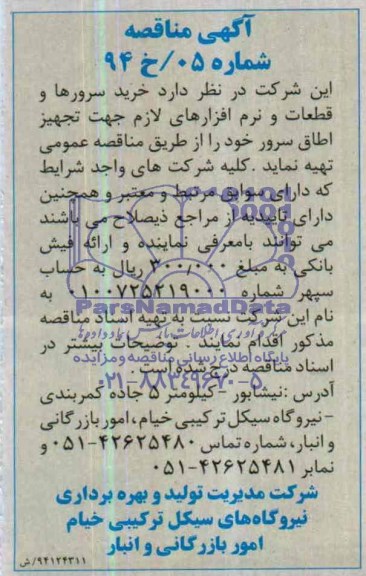 آگهی مناقصه
شماره ۰۵/خ ۹۴
این شرکت در نظر دارد خرید سرورها و
قطعات و نرم افزارهای لازم جهت تجهیز
اطاق سرور خود را از طریق مناقصه عمومی
تهیه نماید .کلیه شرکت های واجد شرایط
که دارای سوابق مرتبط و معتبر و همچنین
دارای تاییدیه از مراجع ذیصلاح می باشند
می توانند بامعرفی نماینده و ارائه فیش
بانکی به مبلغ ۳۰۰/۰۰۰ ریال به حساب
سپهر شماره ۰۱۰۰۷۲۵۲۱۹۰۰۰ به
ParsNamadData
نام این شرکت نسبت به تهیه اسناد مناقصه
مذکور اقدام نمایند . توضیحات بیشتر در
پایگاه اطلاع رسانی مناقصه و مزایده
اسناد مناقصه درج شده است .
۰۲۱-۸۸۳۴۹۶۷۰-۵
آدرس :نیشابور -کیلومتر ۵ جاده کمربندی
-نیروگاه سیکل ترکیبی خیام، امور بازرگانی
و انبار، شماره تماس ۴۲۶۲۵۴۸۰-۰۵۱ و
نمابر ۴۲۶۲۵۴۸۱-۰۵۱
شرکت مدیریت تولید و بهره برداری
نیروگاه‌های سیکل ترکیبی خیام
امور بازرگانی و انبار
۹۴۱۲۴۳۱۱/ش